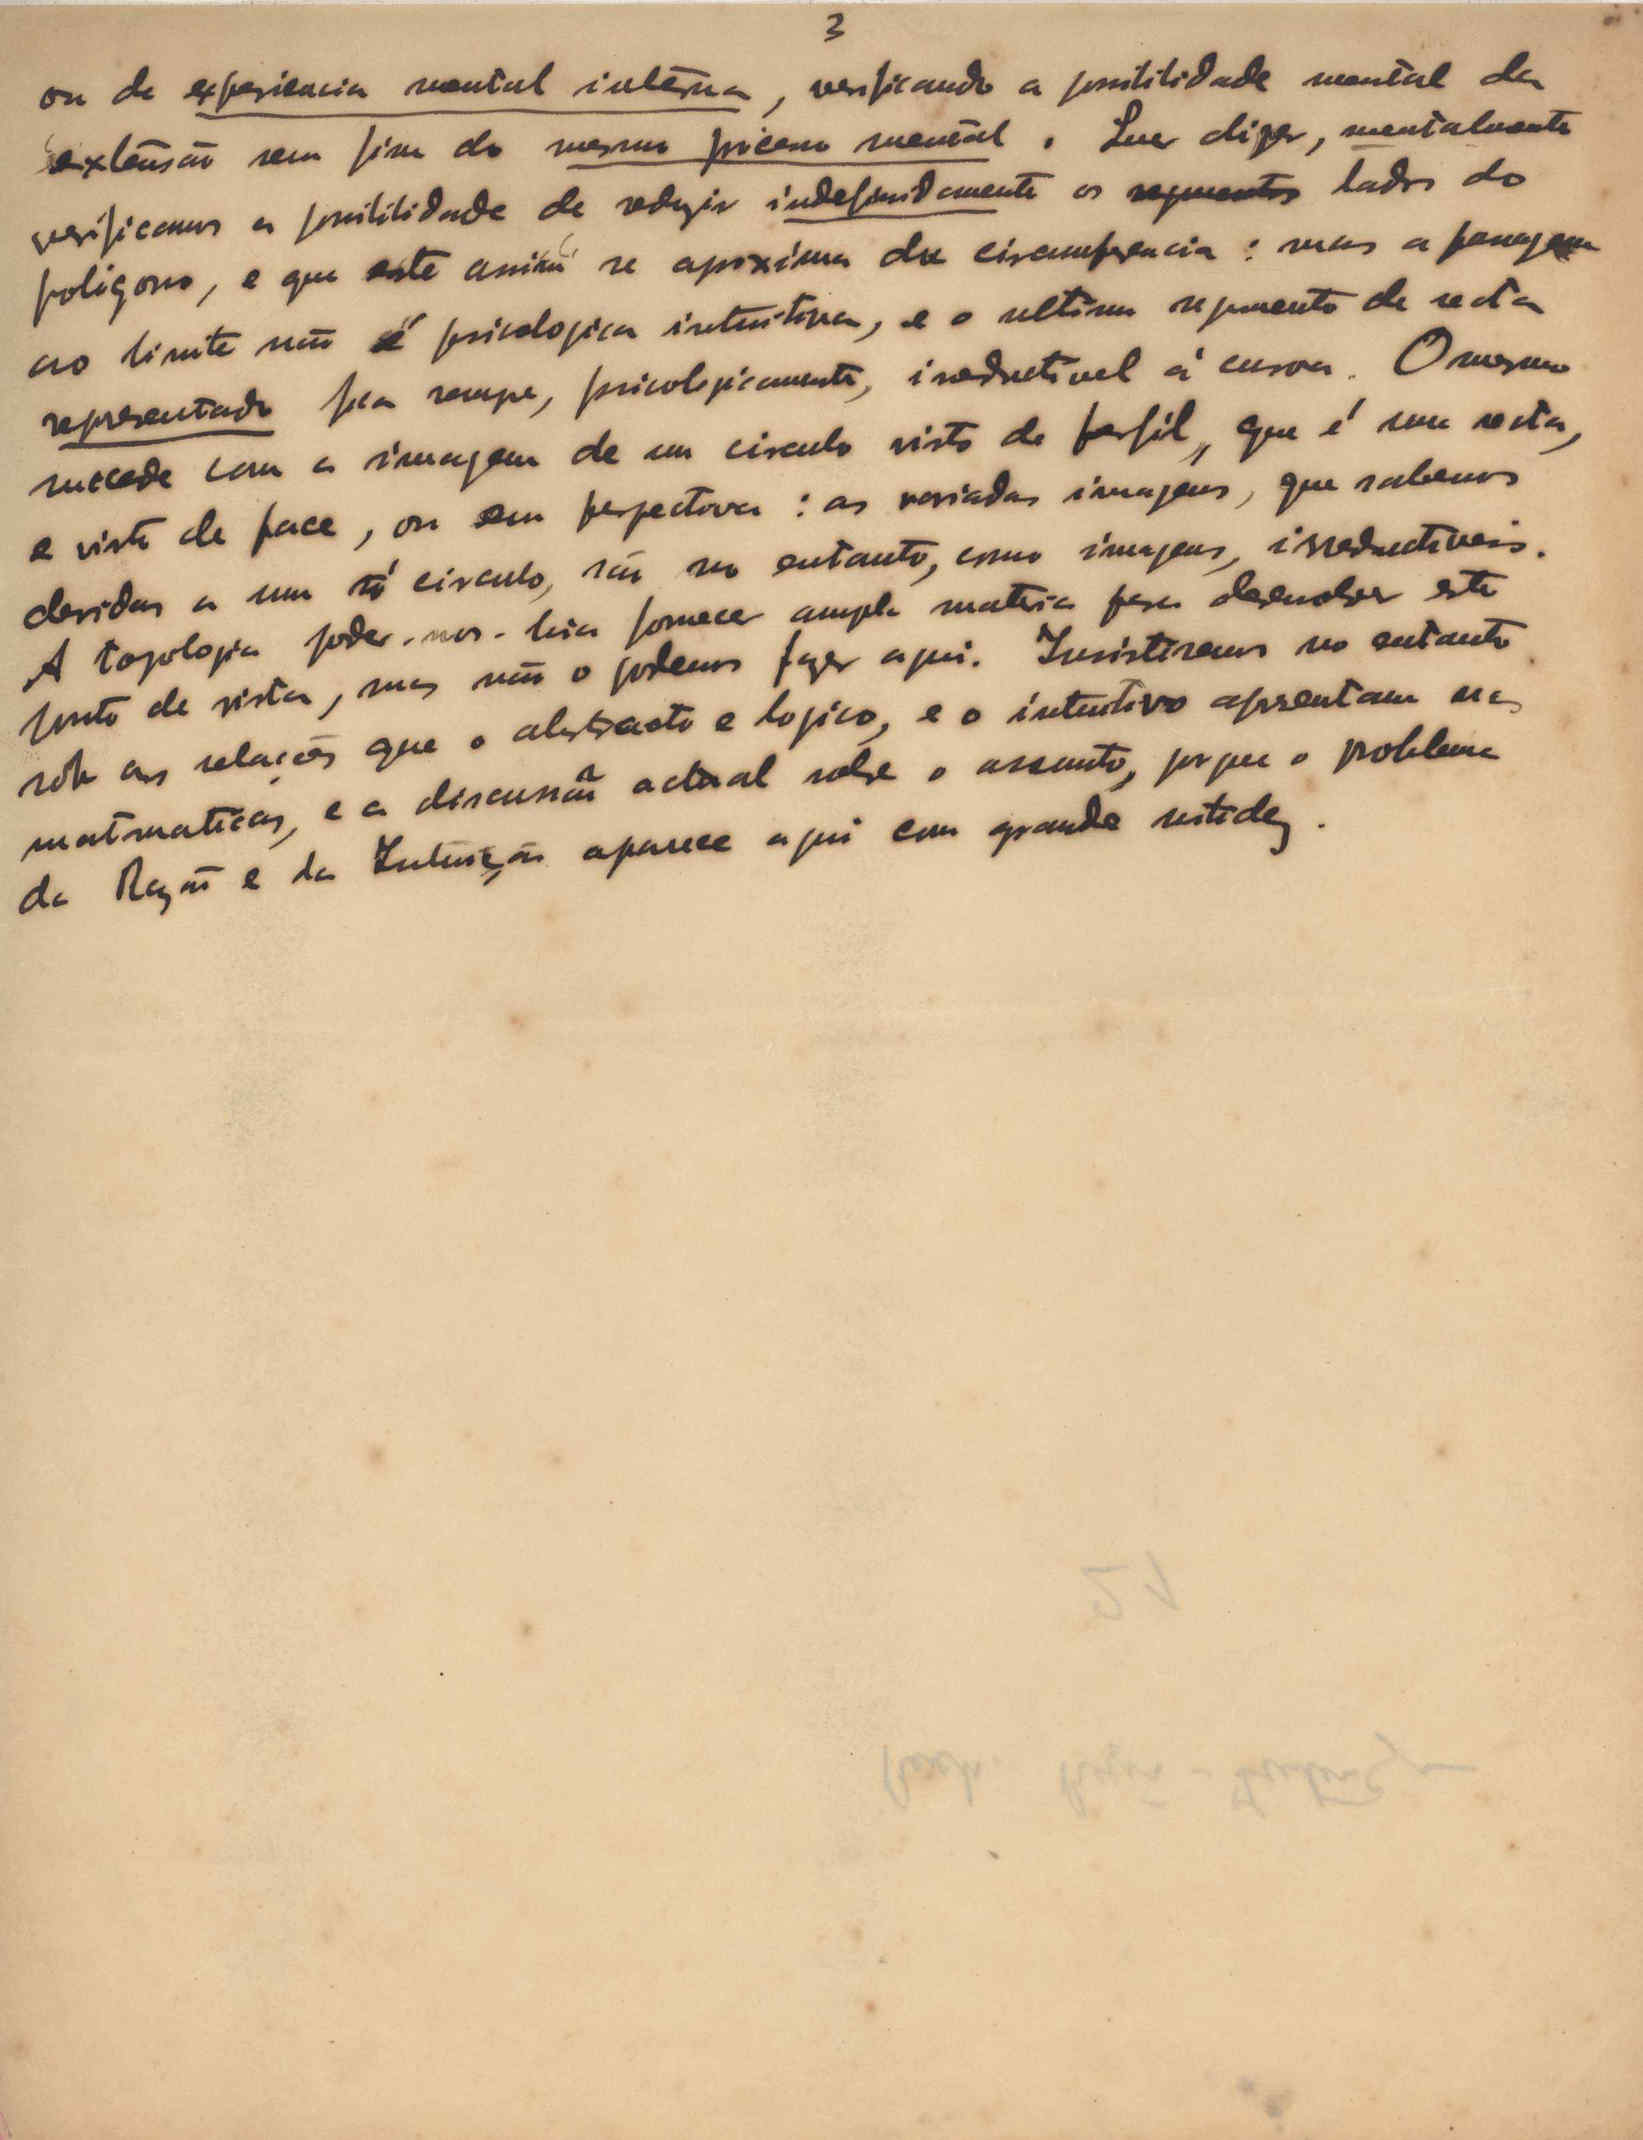 3
ou de experiencia mental interna, verificando a possibilidade mental da
extensão sem fim do mesmo processo mental. Quer dizer, mentalmente
verificamos a possibilidade de reduzir indefinidamente os segmentos lados do
poligono, e que este assim se aproxima da circumferencia: mas a passagem
ao limite não é psicologica intuitiva, e o ultimo segmento de recta
representado fica sempre, psicologicamente, irreductivel á curva. O mesmo
succede com a imagem de um circulo visto de perfil, que é uma recta,
e visto de face, ou em perspectiva: as variadas imagens, que sabemos
devidas a um só circulo, são no entanto, como imagens, irreductiveis.
A topologia poder-nos-hia fornecer ampla materia para desenvolver este
ponto de vista, mas não o podemos fazer aqui. Insistiremos no entanto
sobre as relações que o abstracto e logico, e o intuitivo apresentam nas
matematicas, e a discussão actual sobre o assunto, porque o problema
da Razão e da Intuição aparece aqui com grande nitidez.